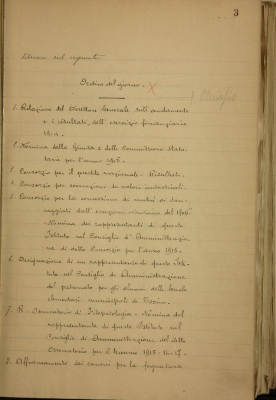 3
sul seguente
Ordine del giorno.
1. Relazione del Direttore Generale sull'andamento
e i risultati dell'esercizio finanziario
2. Nomina della Giunta e della Commissione
per l'anno 1915.
3. Consorzio per il prestito nazionale - Risultati.
4. Consorzio per sovvenzioni su valori industriali.
5. Consorzio per la concessione di mutui ai dan-
neggiati dall'eruzione vesuviana del 1906
- Nomina dei rappresentanti di questo
Istituto nel Consiglio d'Amministrazio-
ne di detto Consorzio per l'anno 1915.
6. Designazione di un rappresentante di questo Isti-
tuto nel Consiglio di Amministrazione
del patronato per gli alunni delle scuole
elementari municipali di
7. R. Osservatorio di Fitopatologia - Nomina del
rappresentante di questo Istituto nel
Consiglio di Amministrazione del detto
Osservatorio per il triennio 1915-16-17.
8. Affrancamento dei canoni per la